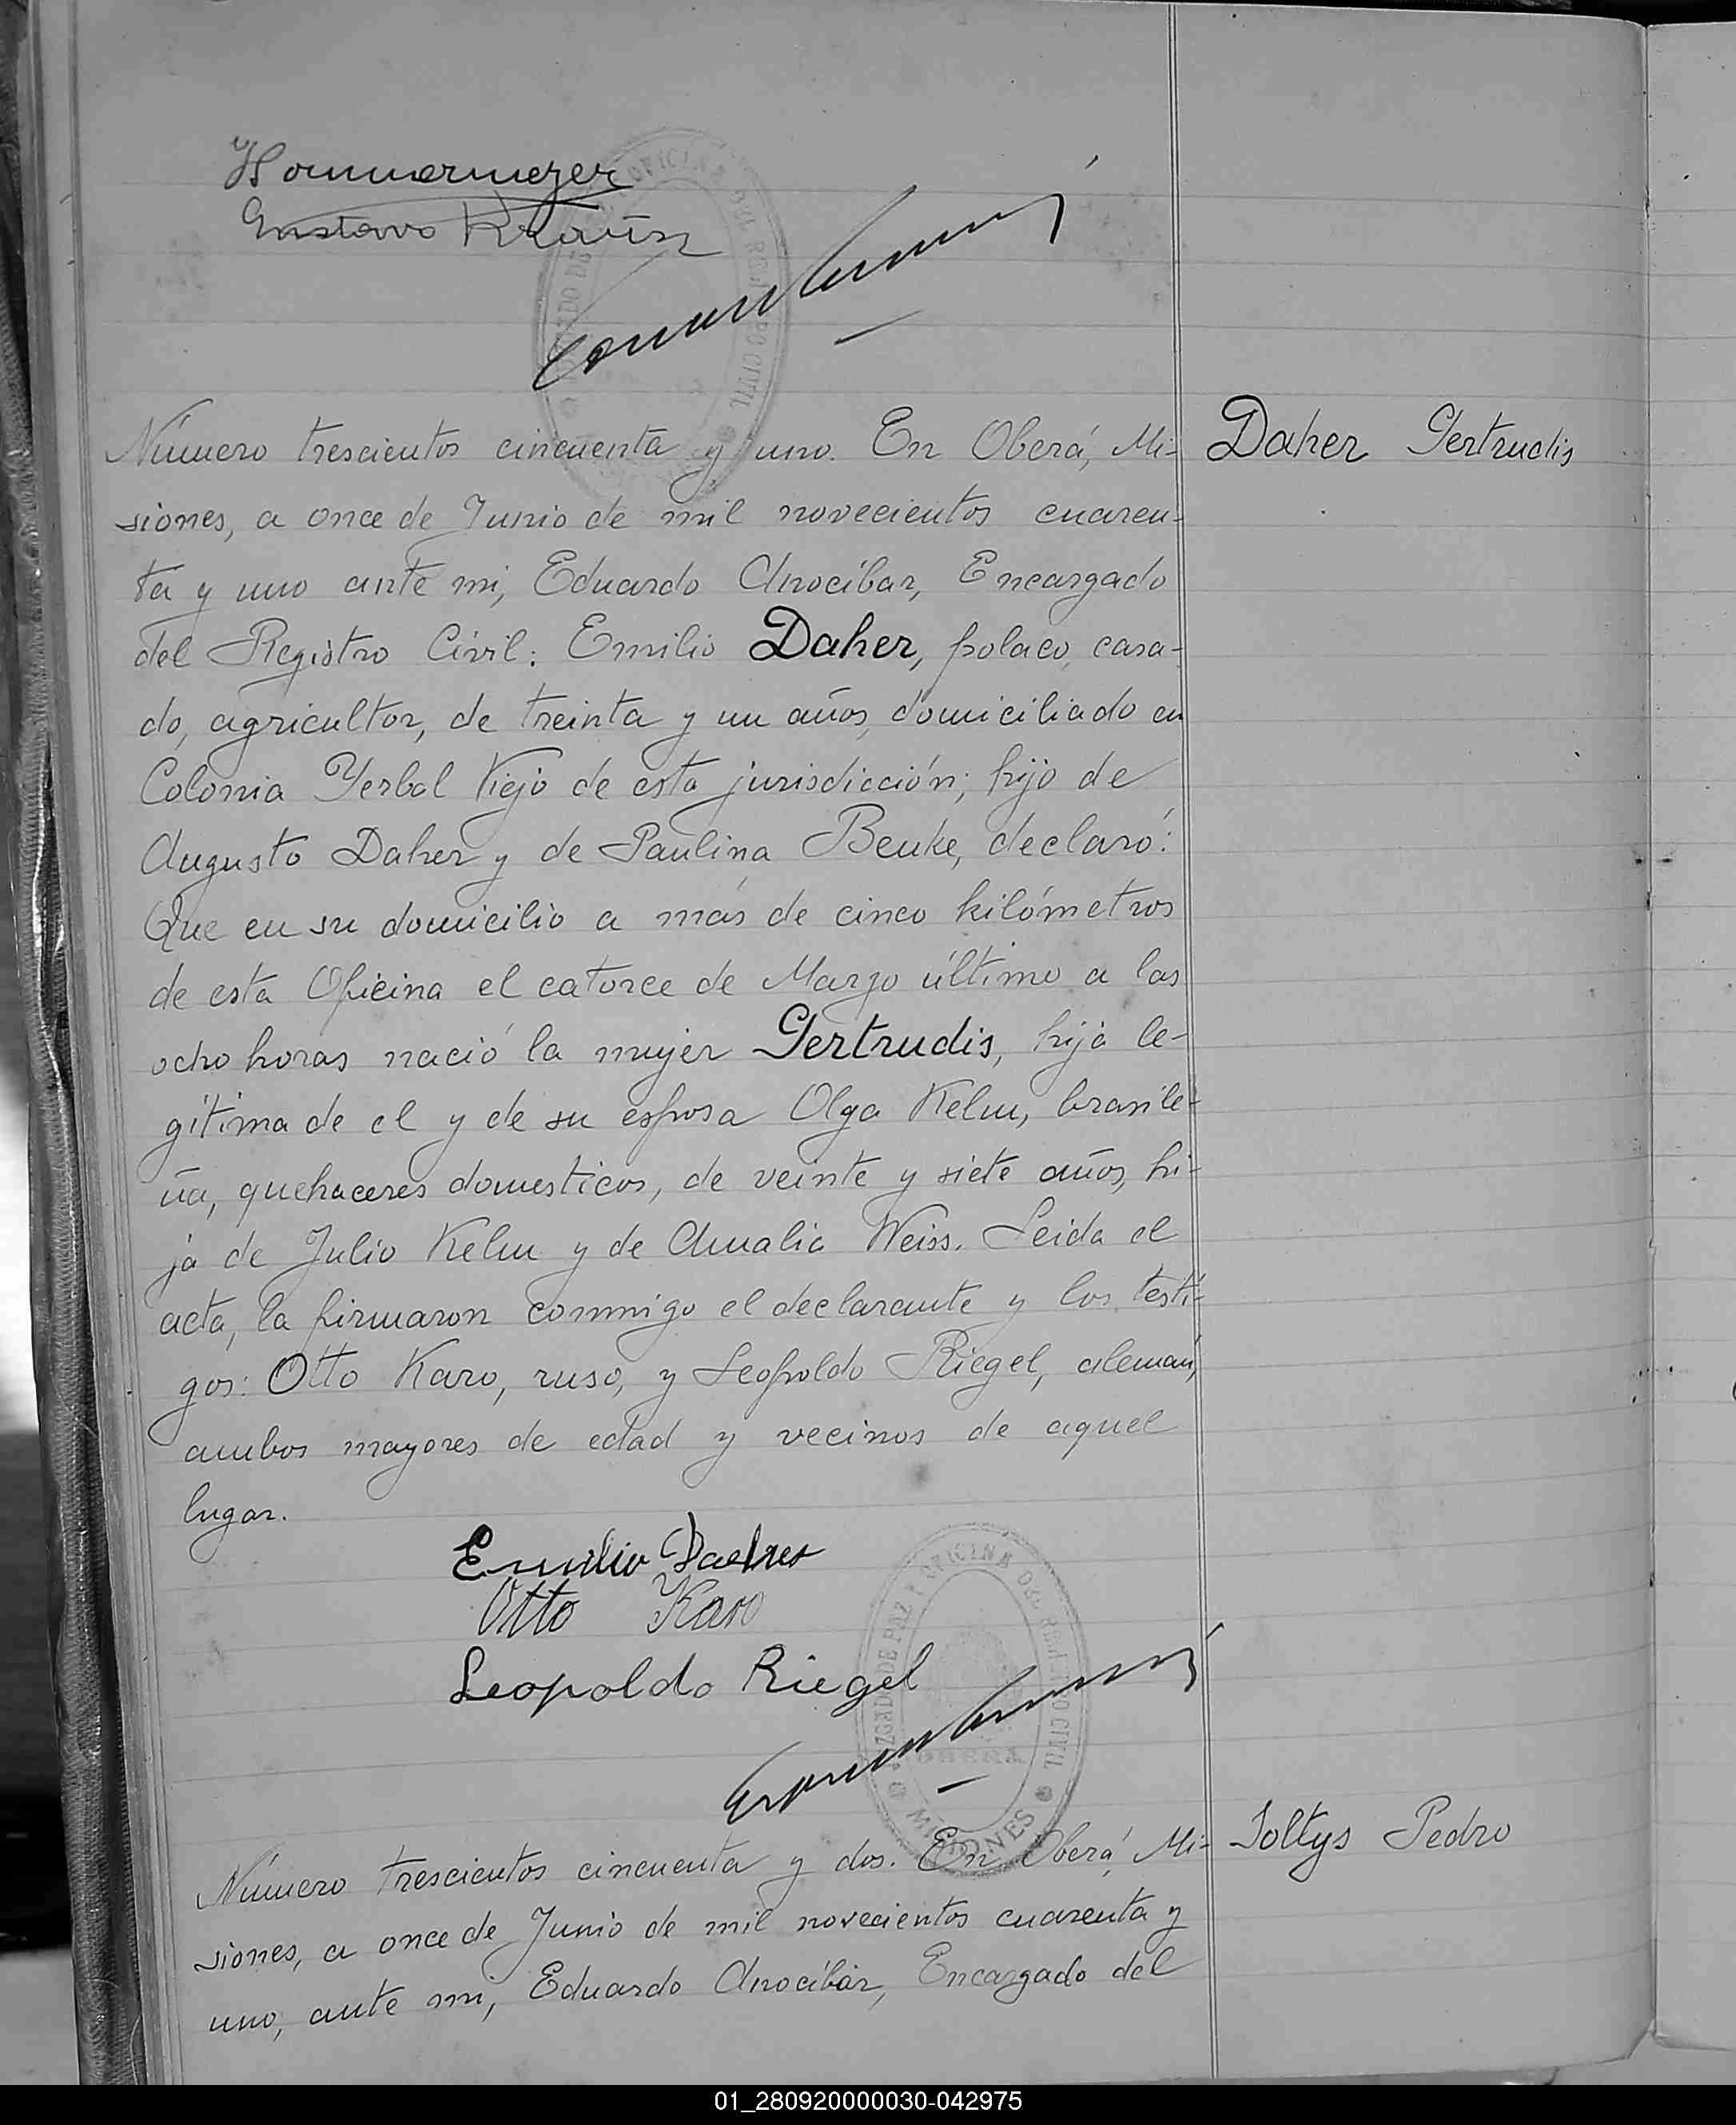 Gustavo Krausz
Número trescientos cincuenta y uno. En Oberá, Mi- Daher Gertrudis
siones, a once de Junio de mil novecientos cuaren-
ta y uno ante mi, Eduardo Anocíbar, Encargado
del Registro Civil: Emilio Daher, polaco, casa-
do, agricultor, de treinta y un años, domiciliado en
Colonia Yerbal Viejo de esta jurisdicción; hijo de
Augusto Daher y de Paulina Beuke, declaró:
Que en su domicilio a más de cinco kilómetros
de esta Oficina el catorce de Marzo último a las
ocho horas nació la mujer Gertrudis, hija le-
gítima de el y de su esposa Olga Kelm, brasile-
ña, quehaceres domesticos, de veinte y siete años, hi-
ja de Julio Kelm y de Amalia Weiss. Leida el
acta, la firmaron conmigo el declarante y los testi-
gos: Otto Karo, ruso, y Leopoldo Riegel, aleman,
ambos mayores de edad y vecinos de aquel
lugar.
Emilio Daeher
Otto Karo
Leopoldo Riegel
JUZGADO DE PAZ Y OFICINA DEL REGISTRO CIVIL
OBERÁ
MISIONES
Número trescientos cincuenta y dos. En Oberá, Mi- Soltys Pedro
siones, a once de Junio de mil novecientos cuarenta y
uno, ante mi, Eduardo Anocíbar, Encargado del
01_280920000030-042975